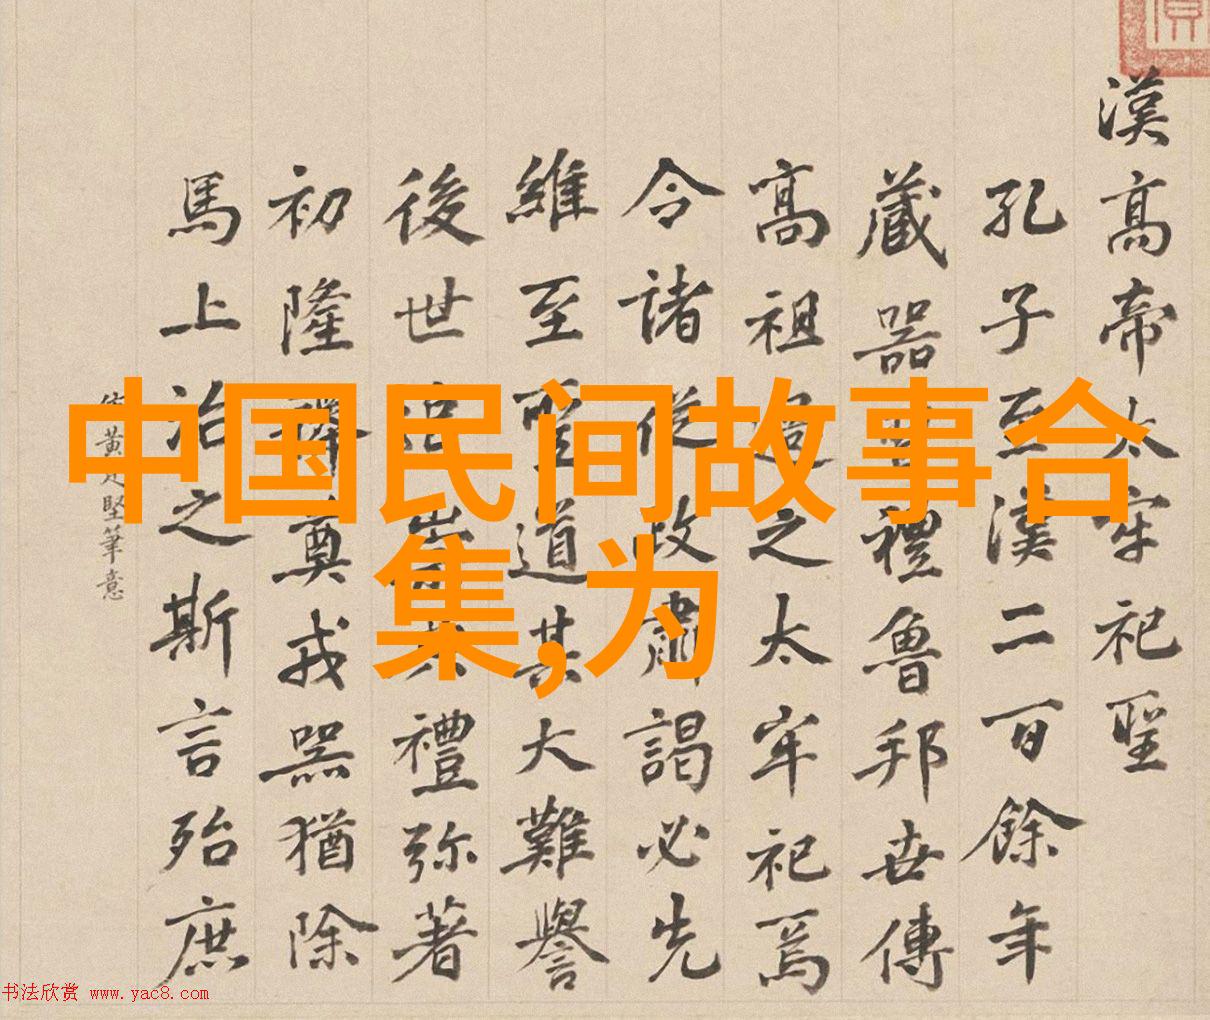 漢高帝太牢祀聖
孔子至漢二百餘年
藏器禮魯邦世傳
高祖過之太牢祀焉
令諸從政肅謁必先
維至聖道其大難譽
後世崇禮弥著
初隆釋奠戎器猶除
馬上治之斯言殆庶
黃庭堅筆意
中国民间故事合
集,为
书法欣赏 www.yac8.com